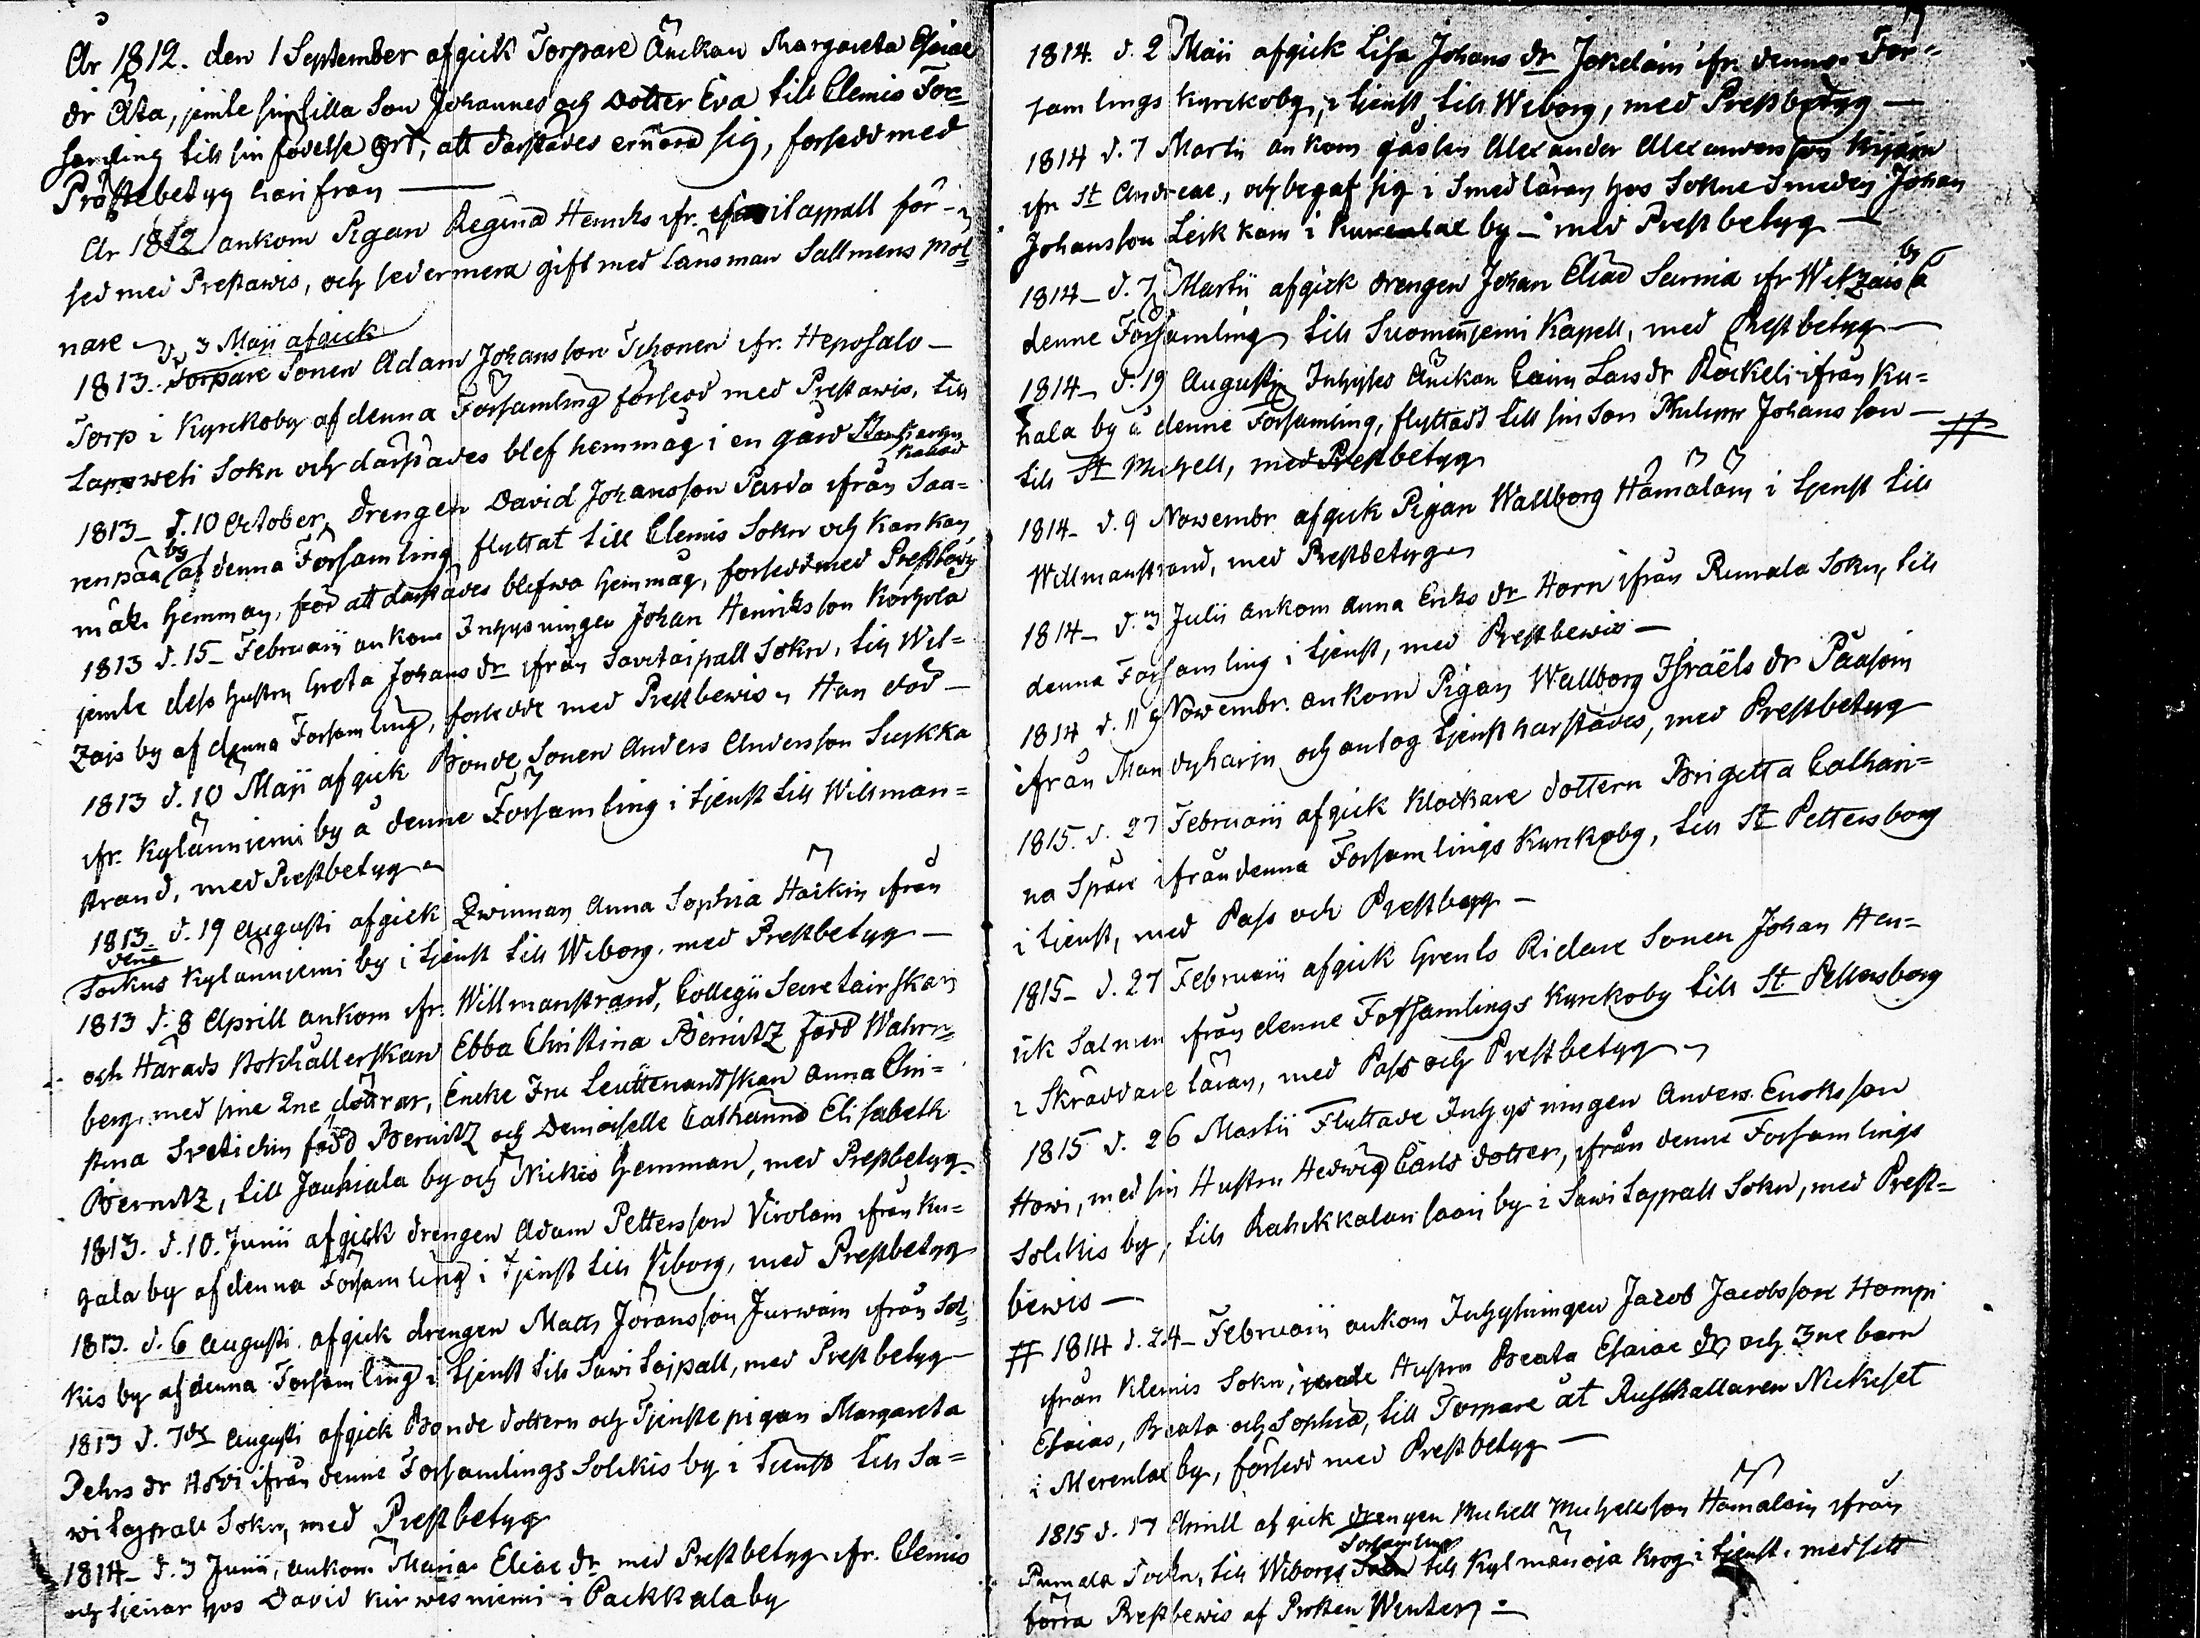 År 1812. den 1 September afgick Torpare Änckan Margareta Esaiæ
dr Äta, jemte sin lilla Son Johannes och Dotter Eva till Clemis For=
samling till sin födelse Ort, att darstädes ernära sig, forsedd med
Prästebetyg harifrån —
År 1812 ankom Pigan Regina Henriks ifr. Savitaipall för-
sed med Prestawis, och sedermera gift med Länsman Sallmens Möl=
nare
d. 3 Maji afgick
1813. Torpare Sonen Adam Johansson Tchonen ifr. Heposalo —
Torp i Kyrckoby af denna Församling försedd med Prestawis, till
Lapweti Sokn och därstädes blef hemmåg i en gård
1813 — d. 10 October, drengen David Johansson Parda ifrån Saa=
renpää by af denna Forsamling flyttat till Clemis Sokn och Kankan
mäki hemman, för att darstädes blifwa hemmåg, forsedd med Prestbetyg
1813 d. 15 — Februarii ankom Inhysningen Johan Henriksson Korhola
jemte dess hustru Greta Johans dr ifrån Savitaipall Sokn, till Wil=
zais by af denna Forsamling, forsedde med Prestbewis — Han död —
1813 d. 10 Maji afgick Bonde Sonen Anders Andersson Suykka
ifr. Kylänniemi by å denne Församling i tjenst till Willman=
strand, med Prestbetyg
1813 — d. 19 Augusti afgick Qwinnan Anna Sophia Häikin ifrån
dena
Sockns Kylänniemi by i tjenst till Wiborg, med Prestbetyg —
1813 d. 8 Aprill ankom ifr. Willmanstrand, Collegii Secretairskan
och Härads Bokhållerskan Ebba Christina Bernitz född Wahrn=
berg, med sine 2ne döttrar, Encke Fru Leuttenantskan Anna Chri=
stina Svetichin född Bernitz och Demoiselle Catharina Elisabeth
Bernitz, till Jauhiala by och Nickis hemman, med Prestbetyg
1813. d. 10. Junii afgick drengen Adam Pettersson Virolain ifrån Ku=
hala by af denna Forsamling i tjenst till Viborg, med Prestbetyg
1813. d. 6 Augusti afgick drengen Matts Jöransson Jurwain ifrån Sol=
kis by af denna Forsamling i tjenst till Sawitaipall, med Prestbetyg —
1813 d. 7de Augusti afgick Bonde dottern och Tjenstepigan Margareta
Pehrs dr Höwi ifrån denne Forsamlings Solckis by i tienst till Sa=
witaipall Sokn, med Prestbetyg
1814 — d. 3 Junii, ankom Maria Eliæ dr med Prestbetyg ifr. Clemis
och tjenar hos David Kirwesniemi i Packkala by
1814. d. 2 Maii afgick Lisa Johans dr Jokelain ifr. denna For=
samlings Kyrckoby, i tienst till Wiborg, med Prestbetyg —
1814 d. 7 Martii ankom gåssen Alexander Alexandersson Kijain
ifr. St Andreae, och begaf sig i Smedläran hos Sokne Smeden Johan
Johansson Leikkain i Kurenlax by — med Prestbetyg —
1814 — d. 7 Martii afgick drengen Johan Eliæ Surnia ifr Wilzais by å
denne Församling till Suomenniemi Kapell, med Prestbetyg —
1814 — d. 19 Augusti Inhyses Änckan Carin Lars dr Röckeli ifrån Ku=
hala by å denne Forsamling, flyttad till sin Son Philipp Johansson —
till St Michell, med Prestbetyg #
1814 — d. 9 Novembr afgick Pigan Wallborg Hämäläin i tjenst till
Willmanstrand, med Prestbetyg
1814 — d. 3 Julii ankom Anna Erics dr Horn ifrån Rumala Sokn, till
denna Forsamling i tjenst, med Prestbewis —
1814 d. 11 Novembr. ankom Pigan Wallborg Israëls dr Pääsöin
ifrån Mandyharju och antog tjenst härstädes, med Prestbetyg
1815. d. 27 Februarii afgick Klockare dottern Brigetta Cathari=
na Spåre ifrån denna Forsamlings Kyrckoby, till St Pettersborg
i tienst, med Pass och Prestbetyg —
1815 — d. 27 Februarii afgick Grents Ridare Sonen Johan Hen=
rik Salmen ifrån denne Forsamlings Kyrckoby till St Pettersborg
i Skräddare läran, med Pass och Prestbetyg
1815 d. 26 Martii Flyttade Inhysningen Anders Ericksson
Howi, med sin Hustru Hedwig Carls dotter, ifrån denne Forsamlings
Solckis by, till Rahikkalan saari by i Sawitaipall Sokn, med Prest=
bewis —
# 1814 d. 24 — Februarii ankom Inhysningen Jacob Jacobsson Hompi
ifrån Klemis Sokn, jemte Hustru Beata Esaiae dr och 3ne barn
Esaias, Beata och Sophia, till Torpare åt Rusthållaren Nickiset
i Merenlax by, försedd med Prestbetyg —
1815 d. 17 Aprill afgick drengen Michell Michellsson Hämäläin ifrån
Forsamling
Pumala Sockn, till Wiborgs till Kylmänoja Krog i tjenst, med sitt
förra Prestbewis af Prosten Winter —